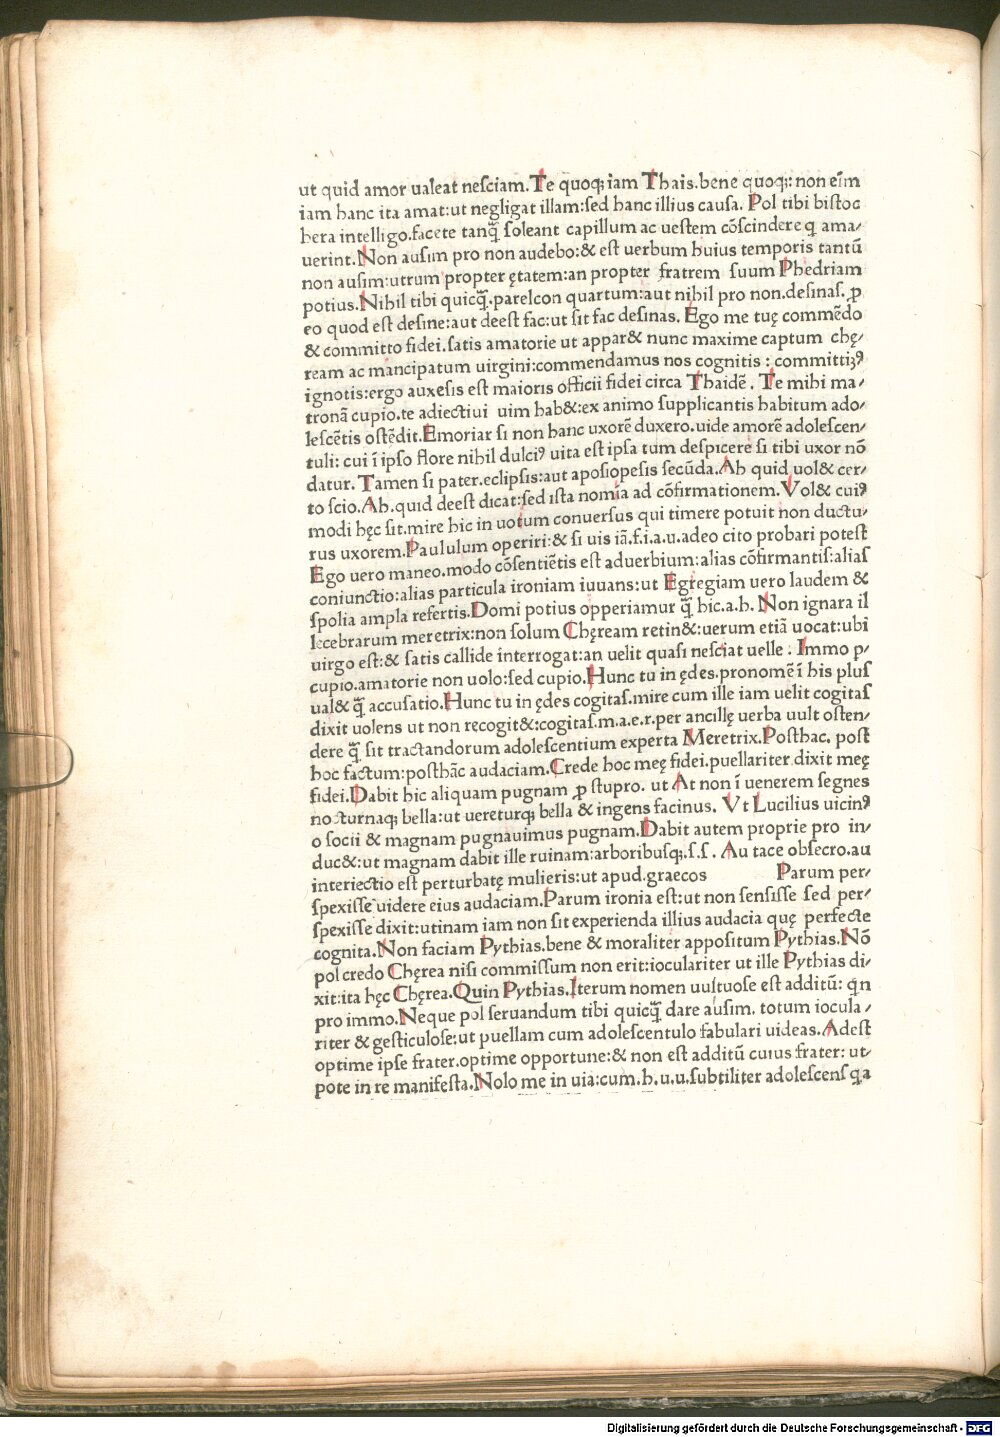 ut quid amor ualeat neſciam.Te quoq; iam Thais.bene quoq;: non eīm
iam hanc ita amat:ut negligat illam:ſed hanc illius cauſa. Pol tibi biſtoc
hera intelligo.facete tanq̄ ſoleant capillum ac ueſtem cōſcindere q ama/
uerint.Non auſim pro non audebo:& eſt uerbum huius temporis tantū
non auſim:utrum propter ętatem:an propter fratrem ſuum Phedriam
potius.Nihil tibi quicq̄.parelcon quartum:aut nihil pro non.deſinaſ. ꝓ
eo quod eſt deſine:aut deeſt fac:ut ſit fac deſinas. Ego me tuę commēdo
& committo fidei.ſatis amatorie ut appar& nunc maxime captum chę/
ream ac mancipatum uirgini:commendamus nos cognitis : committiꝫꝰ
ignotis:ergo auxeſis eſt maioris officii fidei circa Thaidē. Te mihi ma/
tronā cupio.te adiectiui uim hab&:ex animo ſupplicantis habitum ado/
leſcētis oſtēdit.Emoriar ſi non hanc uxorē duxero.uide amorē adoleſcen/
tuli: cui ī ipſo flore nihil dulciꝰ uita eſt ipſa tum deſpicere ſi tibi uxor nō
datur. Tamen ſi pater.eclipſis:aut apoſiopeſis ſecūda.Ah quid uol& cer/
to ſcio.Ah.quid deeſt dicat:ſed iſta nomia ad cōfirmationem.Vol& cuiꝰ
modi hęc ſit.mire hic in uotum conuerſus qui timere potuit non ductu/
rus uxorem.Paululum operiri:& ſi uis iā.f.i.a.u.adeo cito probari poteſt
Ego uero maneo.modo cōſentiētis eſt aduerbium:alias cōfirmantiſ:aliaſ
coniunctio:alias particula ironiam iuuans:ut Egregiam uero laudem &
ſpolia ampla refertis.Domi potius opperiamur q̄ hic.a.h. Non ignara il
lecebrarum meretrix:non ſolum Chęream retin&:uerum etiā uocat:ubi
uirgo eſt:& ſatis callide interrogat:an uelit quaſi neſciat uelle : Immo p/
cupio.amatorie non uolo:ſed cupio.Hunc tu in ędes.pronomē ī his pluſ
ual& q̄ accuſatio.Hunc tu in ędes cogitaſ.mire cum ille iam uelit cogitaſ
dixit uolens ut non recogit&:cogitaſ.m.a.e.r.per ancillę uerba uult oſten/
dere q̄ ſit tractandorum adoleſcentium experta Meretrix.Poſthac. poſt
hoc factum:poſthāc audaciam.Crede hoc meę fidei.puellariter dixit meę
fidei.Dabit hic aliquam pugnam ꝓ ſtupro. ut At non ī uenerem ſegnes
nocturnaq; bella:ut uereturq; bella & ingens facinus. Vt Lucilius uicinꝰ
o ſocii & magnam pugnauimus pugnam.Dabit autem proprie pro in/
duc&:ut magnam dabit ille ruinam:arboribuſq;.ſ.ſ. Au tace obſecro.au
interiectio eſt perturbatę mulieris:ut apud.graecos Parum per/
ſpexiſſe uidere eius audaciam.Parum ironia eſt:ut non ſenſiſſe ſed per/
ſpexiſſe dixit:utinam iam non ſit experienda illius audacia quę perfecte
cognita.Non faciam Pythias.bene & moraliter appoſitum Pythias.Nō
pol credo Chęrea niſi commiſſum non erit:ioculariter ut ille Pythias di/
xit:ita hęc Chęrea.Quin Pythias.Iterum nomen uultuoſe eſt additū: qn
pro immo.Neque pol ſeruandum tibi quicq̄ dare auſim. totum iocula/
riter & geſticuloſe:ut puellam cum adoleſcentulo fabulari uideas.Adeſt
optime ipſe frater.optime opportune:& non eſt additū cuius frater: ut/
pote in re manifeſta.Nolo me in uia:cum.h.u.u.ſubtiliter adoleſcenſ q̨a
Digitalisierung gefördert durch die Deutsche Forschungsgemeinschaft - DFG